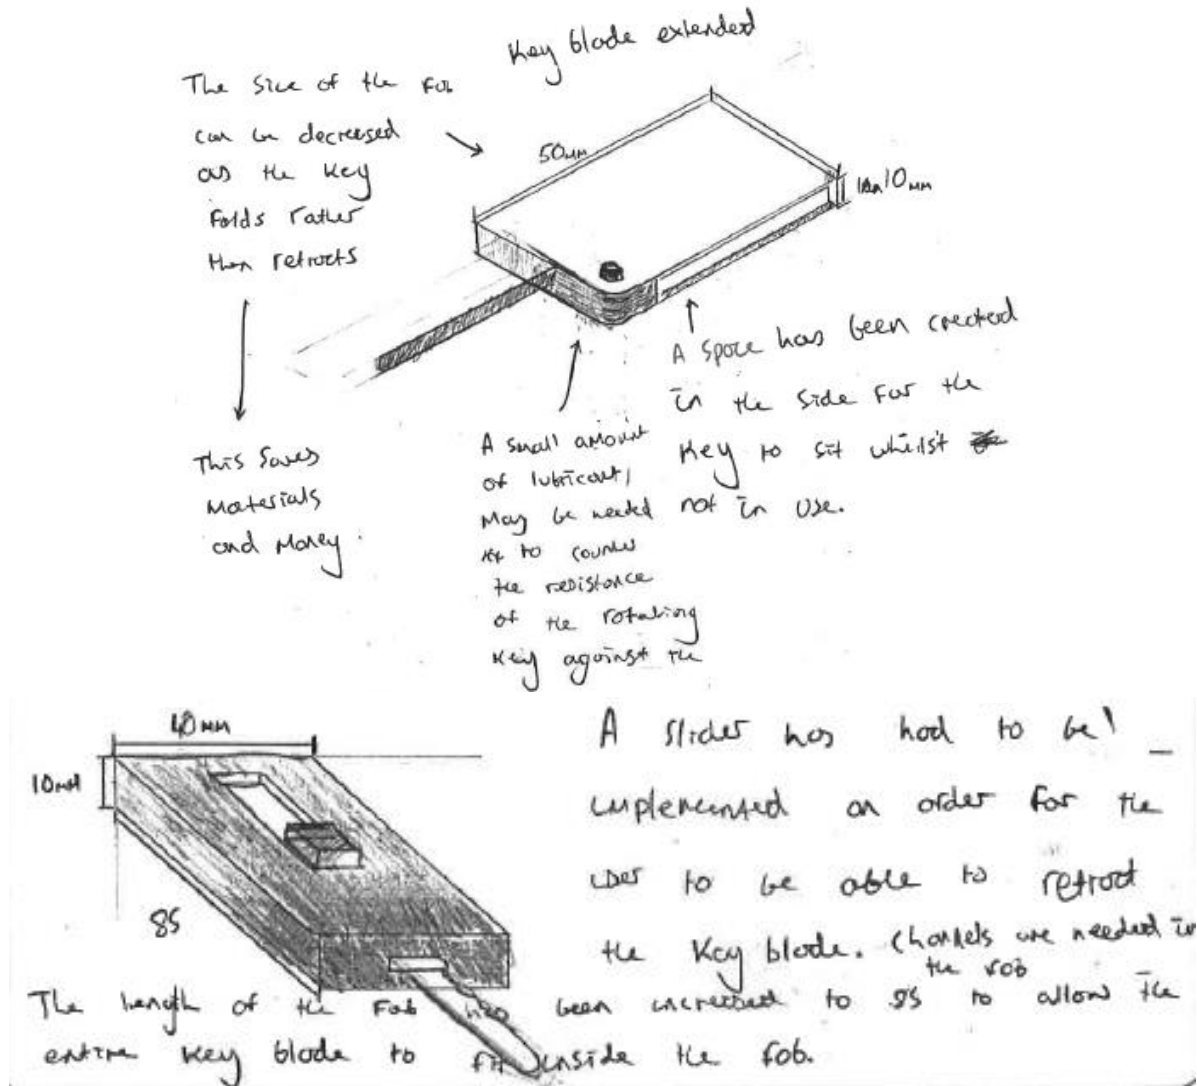 Key blade extended
The size of the Fob
can be decreased
as the key
Folds rather
than retracts
50mm
10mm
This saves
Materials
and Money.
A small amount
of lubricant,
May be needed
to counter
the resistance
of the rotating
Key against the
A space has been created
in the side For the
Key to sit whilst
not in use.
40mm
10mm
85
A slider has had to be
implemented in order for the
user to be able to retract
the Key blade. Channels are needed in
the Fob
The length of the Fob has been increased to 85 to allow the
entire Key blade to fit inside the Fob.